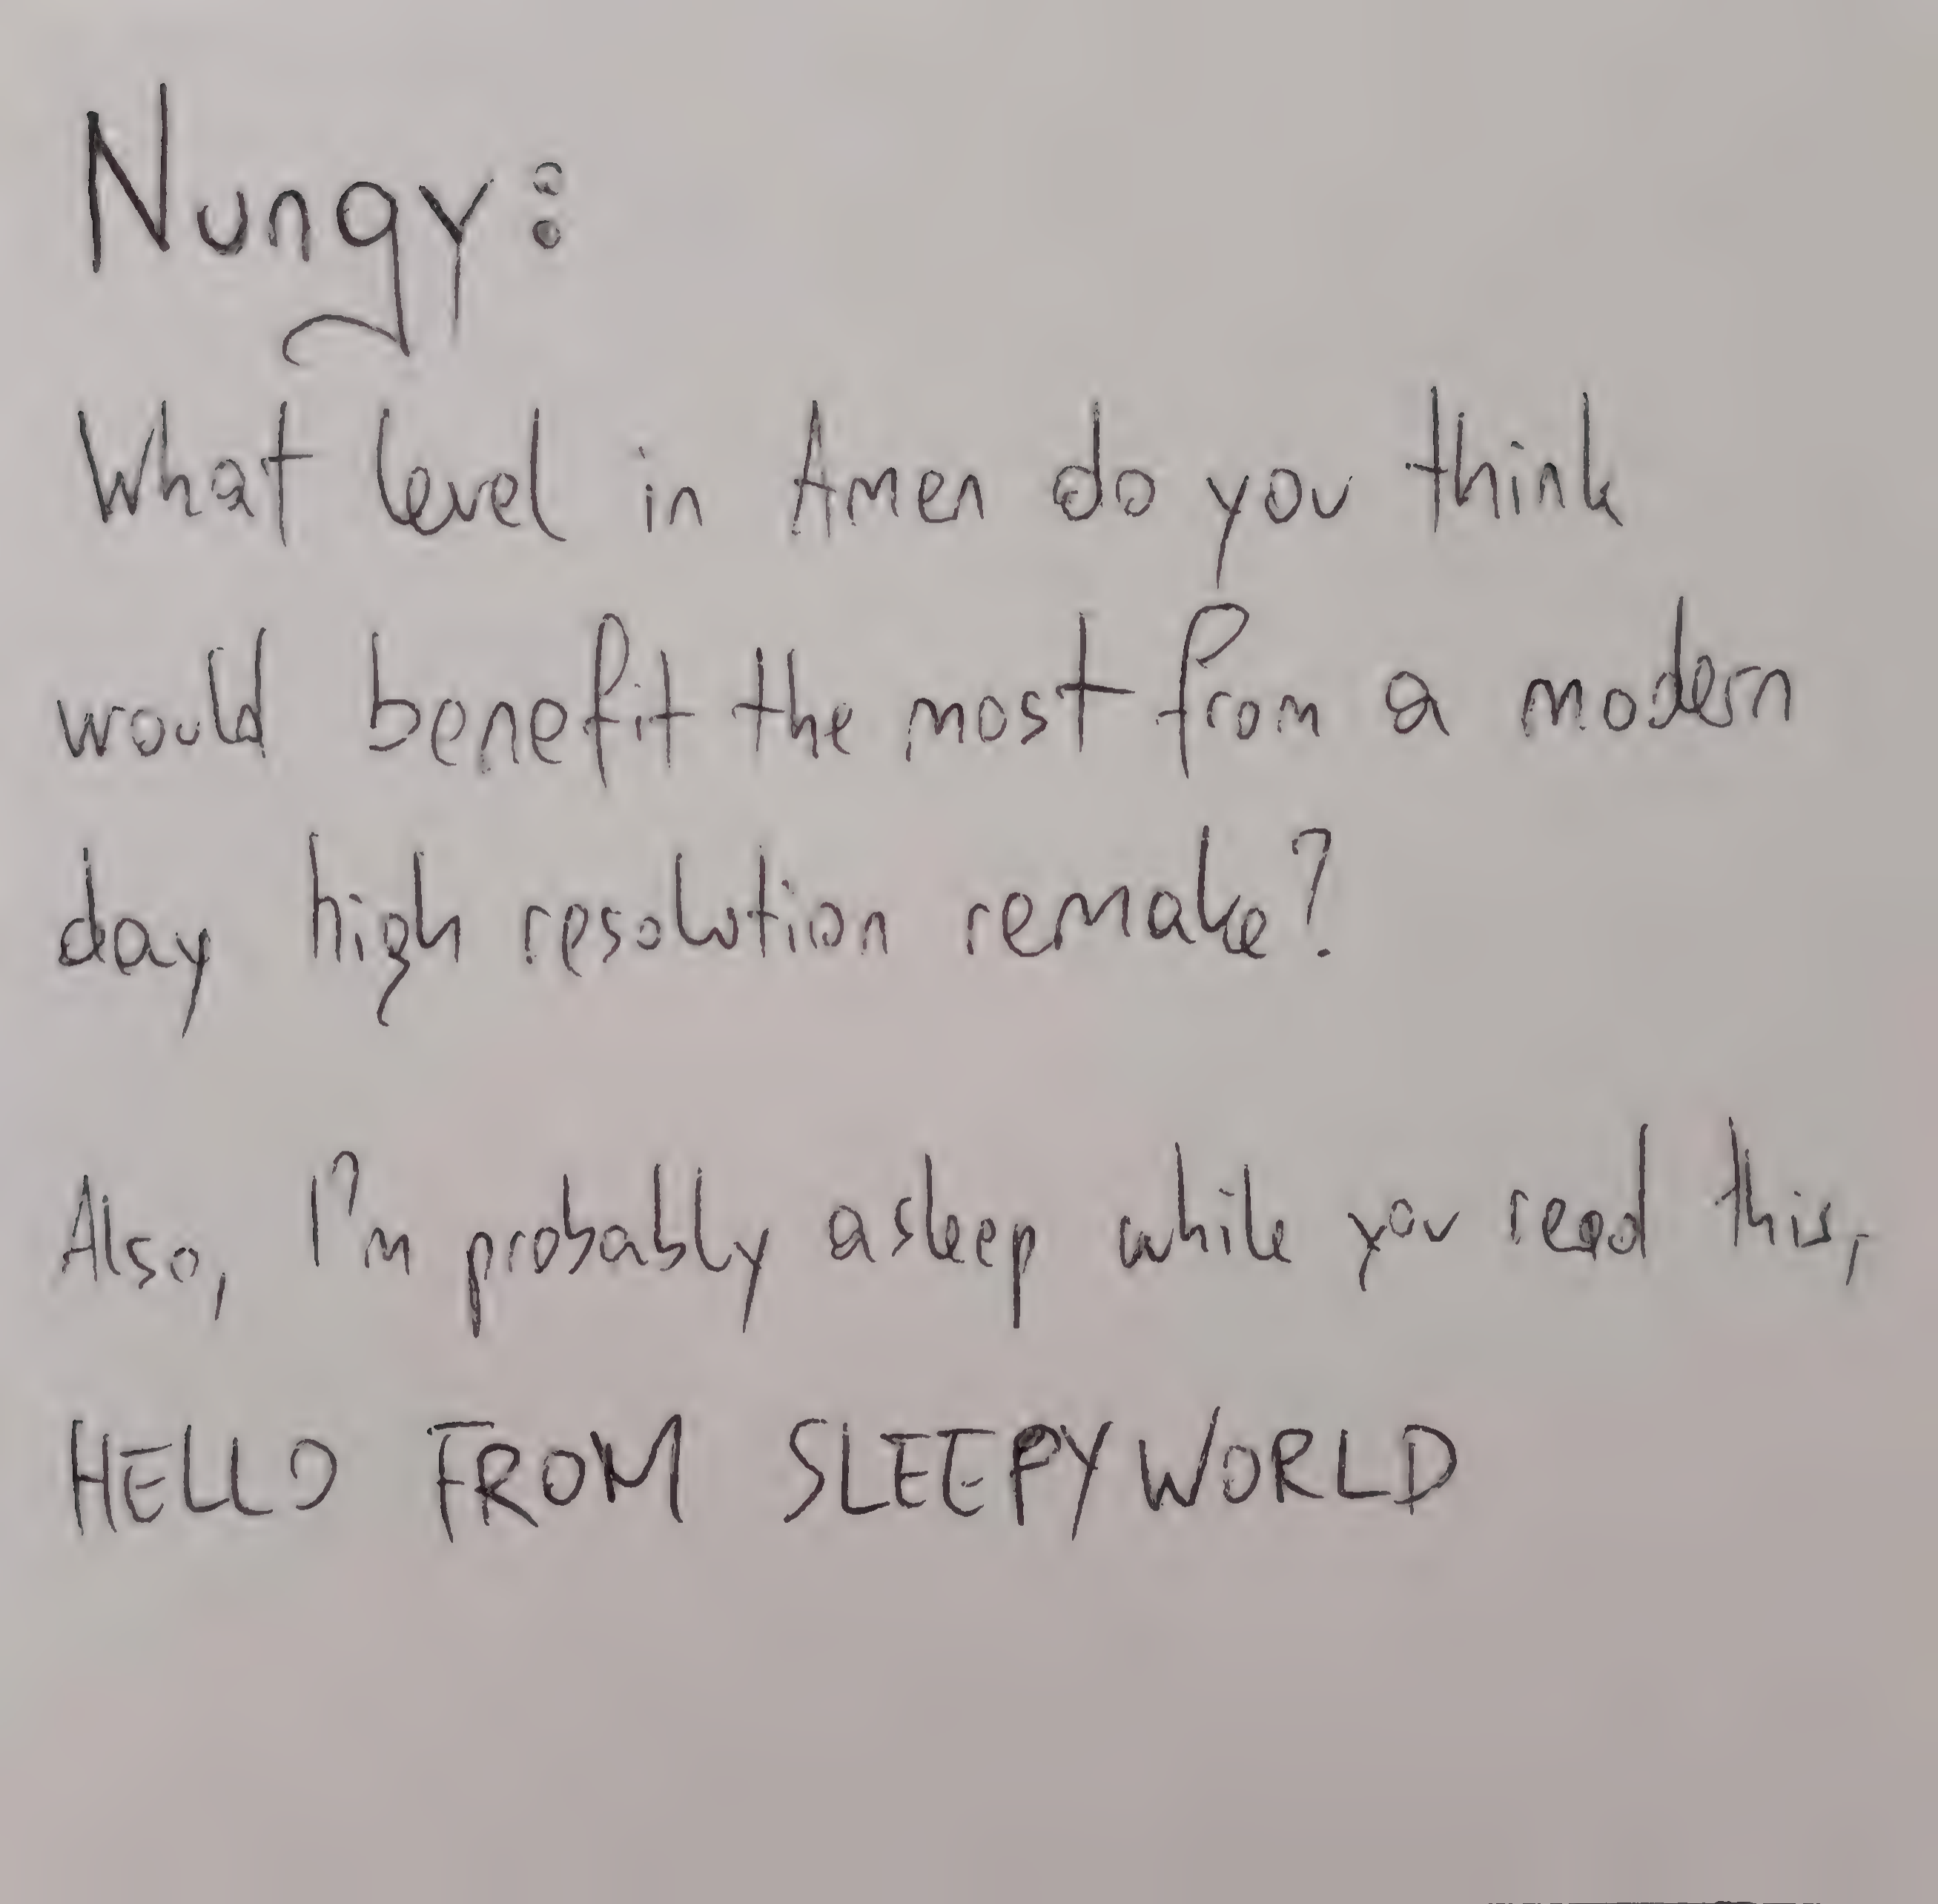 Nungy:
What level in Amen do you think
would benefit the most from a modern
day high resolution remake?
Also, I'm probably asleep while you read this,
HELLO FROM SLEEPYWORLD